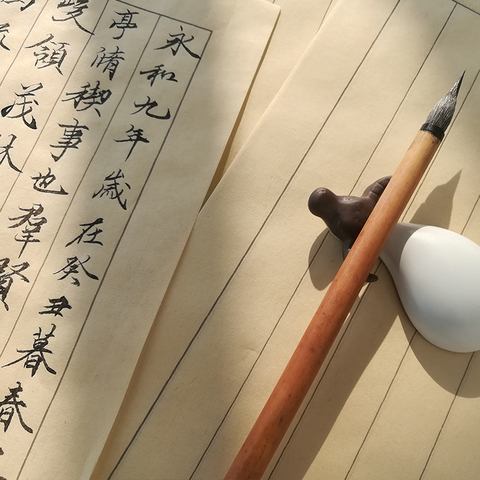 永和九年歲在癸丑暮春
亭脩禊事也羣賢
領茂林